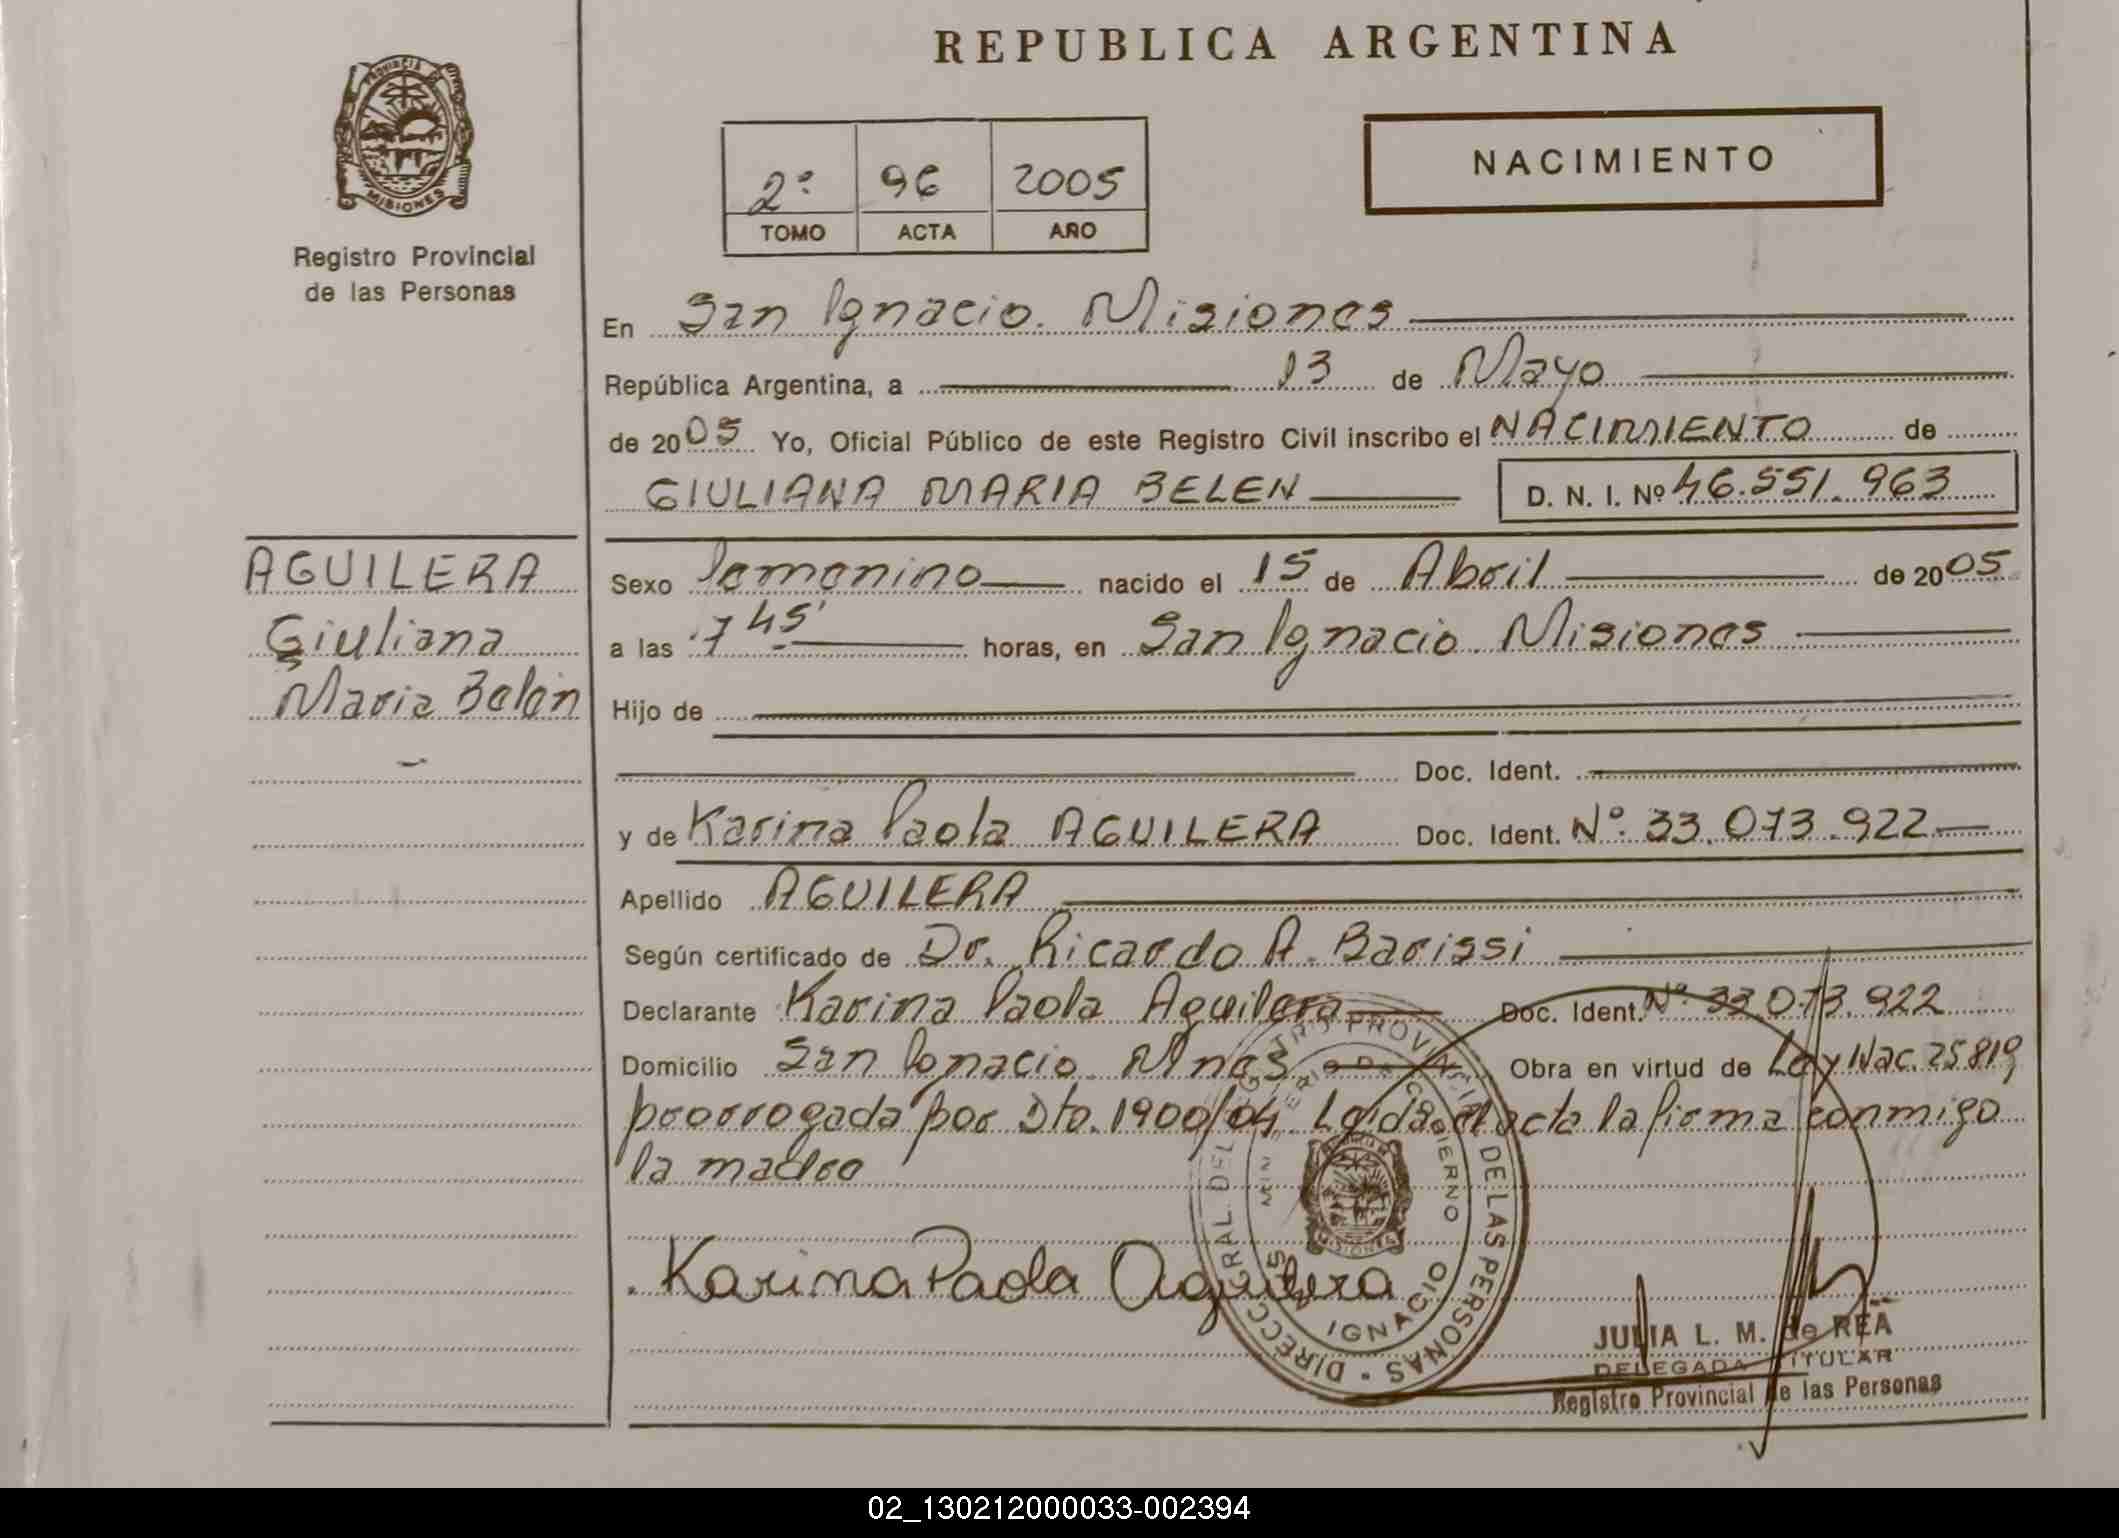 REPUBLICA ARGENTINA
PROVINCIA DE MISIONES
Registro Provincial
de las Personas
2º 96 2005
TOMO ACTA AÑO
NACIMIENTO
En San Ignacio. Misiones
República Argentina, a 13 de Mayo
de 2005 Yo, Oficial Público de este Registro Civil inscribo el NACIMIENTO de
GIULIANA MARIA BELEN D. N. I. Nº 46.551.963
AGUILERA
Giuliana
Maria Belén
Sexo femenino nacido el 15 de Abril de 2005
a las 7 45' horas, en San Ignacio. Misiones
Hijo de
Doc. Ident.
y de Karina Paola AGUILERA Doc. Ident. Nº. 33.073.922
Apellido AGUILERA
Según certificado de Dr. Ricardo A. Barissi
Declarante Karina Paola Aguilera Doc. Ident. Nº. 33.073.922
Domicilio San Ignacio. Mnes Obra en virtud de Ley Nac. 25819
prorrogada por Dto. 1900/04. Leida el acta la firma conmigo
la madre
Karina Paola Aguilera
DIRECC. GRAL. DEL REGISTRO PROVINCIAL DE LAS PERSONAS
IGNACIO
MISIONES
JULIA L. M. de REA
DELEGADA TITULAR
Registro Provincial de las Personas
02_130212000033-002394